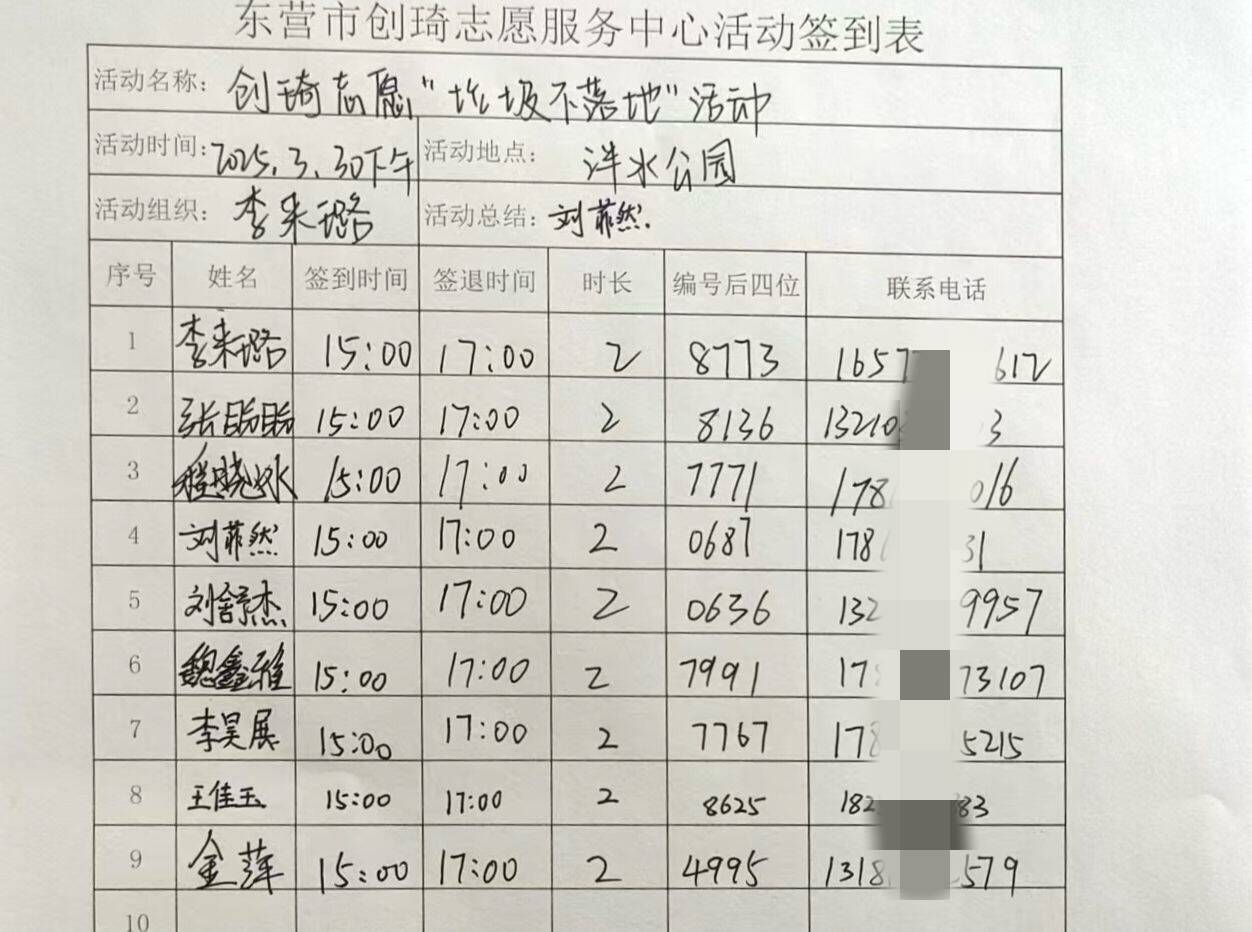 东营市创琦志愿服务中心活动签到表
活动名称：创琦志愿“垃圾不落地”活动
活动时间：2025.3.30下午 活动地点：泮水公园
活动组织：李来璐 活动总结：刘菲然.
序号 姓名 签到时间 签退时间 时长 编号后四位 联系电话
1 李来璐 15:00 17:00 2 8773 1657 612
2 张盼盼 15:00 17:00 2 8136 13210 3
3 程晓冰 15:00 17:00 2 7771 178 016
4 刘菲然 15:00 17:00 2 0687 178 31
5 刘舒杰 15:00 17:00 2 0636 132 9957
6 魏鑫雅 15:00 17:00 2 7991 17 73107
7 李昊展 15:00 17:00 2 7767 178 5215
8 王佳玉 15:00 17:00 2 8625 182 83
9 金萍 15:00 17:00 2 4995 1318 579
10